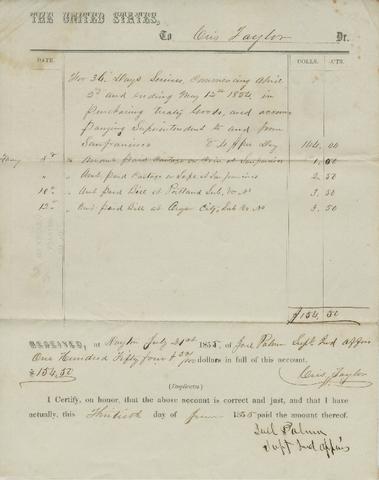 THE UNITED STATES,
To Cris Taylor Dr.
DATE. DOLLS. CTS.
For 36 Days Service, Commencing April
2d and ending May 12th 1854 in
purchasing treaty Goods, and accom
panying Superintendent to and from
Sanfrancisco @ $4 Per Day 144.00
May " Amount paid Cartage 1.00
" " Amt Paid Cartage 2.50
10th " Amt Paid Bill at Portland 3.50
12th " Amt paid Bill at Oregon City, 3.50
$154.50
RECEIVED, at Dayton July 21st 1855, of Joel Palmer Supt Ind Affairs
One Hundred Fifty four & 50/100 dollars in full of this account.
$154.50 Cris Taylor
(Duplicate)
I CERTIFY, on honor, that the above account is correct and just, and that I have
actually, this Thirtieth day of June 1855 paid the amount thereof.
Joel Palmer
Supt Ind Affairs